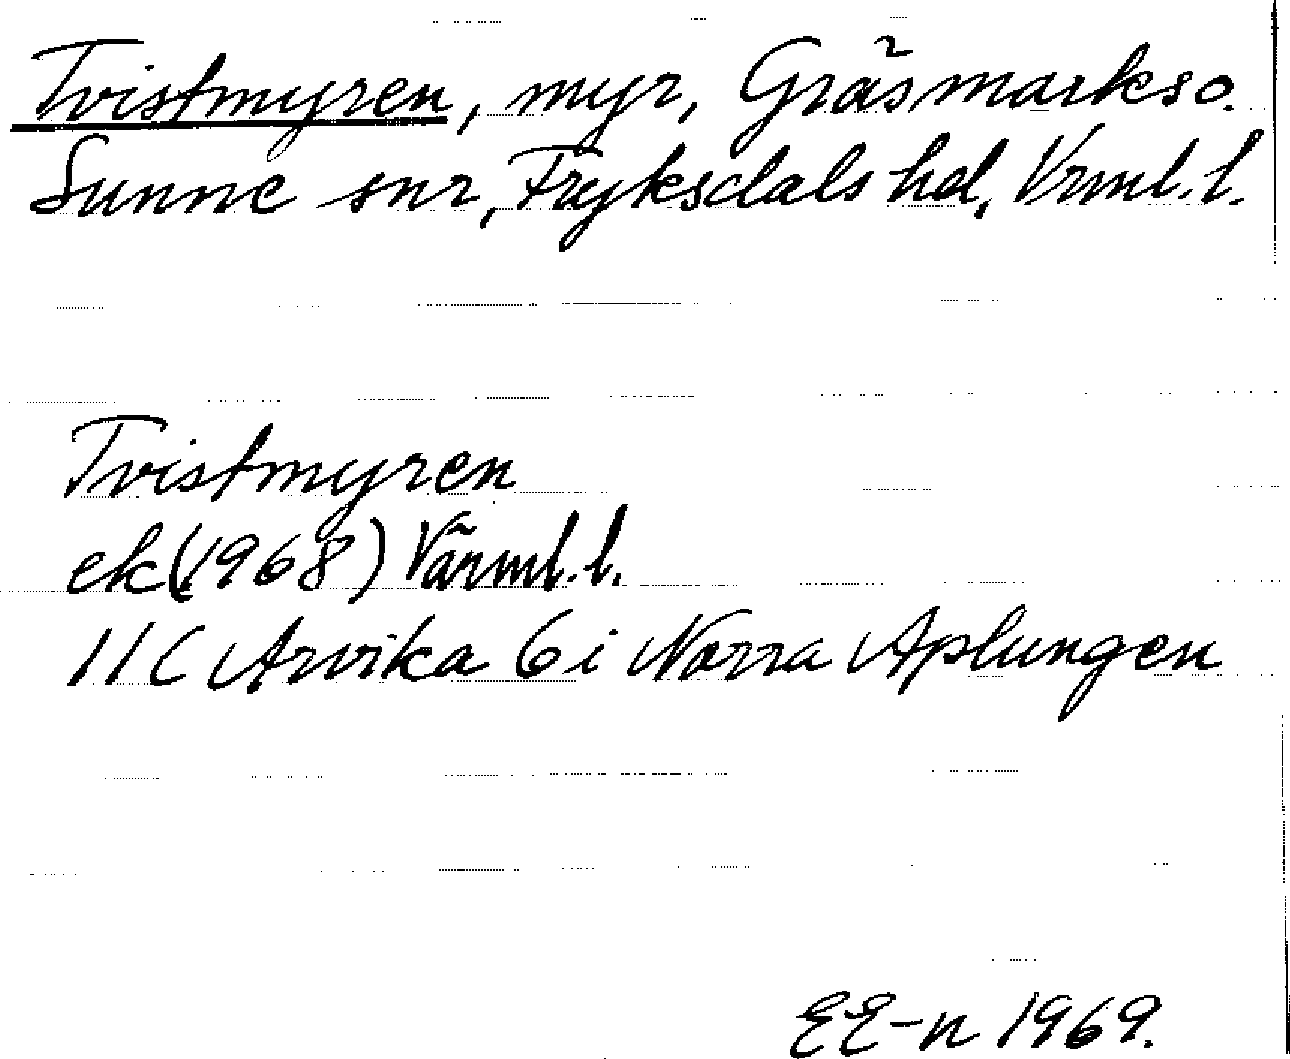 Tvistmyren, myr, Gräsmarks o.
Sunne snr, Fryksdals hd, Vrml. l.
Tvistmyren
ek (1968) Värml. l.
11C Arvika 6 i Norra Aplungen
EE-n 1969.